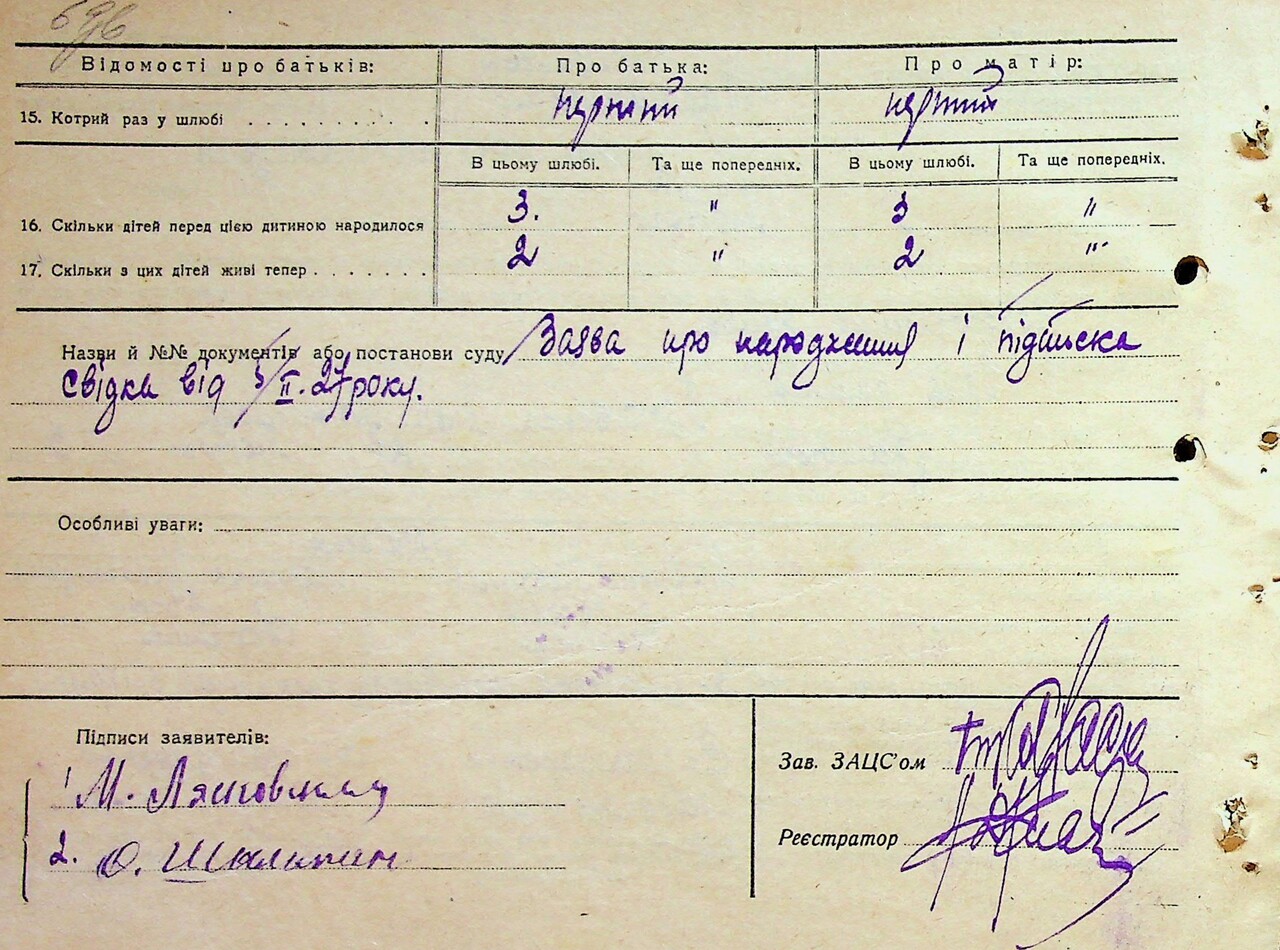 Відомості про батьків: Про батька: Про матір:
15. Котрий раз у шлюбі . . . . . . . . . . перший перший
В цьому шлюбі. Та ще попередніх. В цьому шлюбі. Та ще попередніх.
16. Скільки дітей перед цією дитиною народилося 3. " 3 "
17. Скільки з цих дітей живі тепер . . . . . . . 2 " 2 "
Назви й №№ документів або постанови суду Заява про народження і підпіска
свідка від 5/II-27 року.
Особливі уваги:
Підписи заявителів:
1 М.
2. О. Шаляпин
Зав. ЗАЦС'ом
Реєстратор